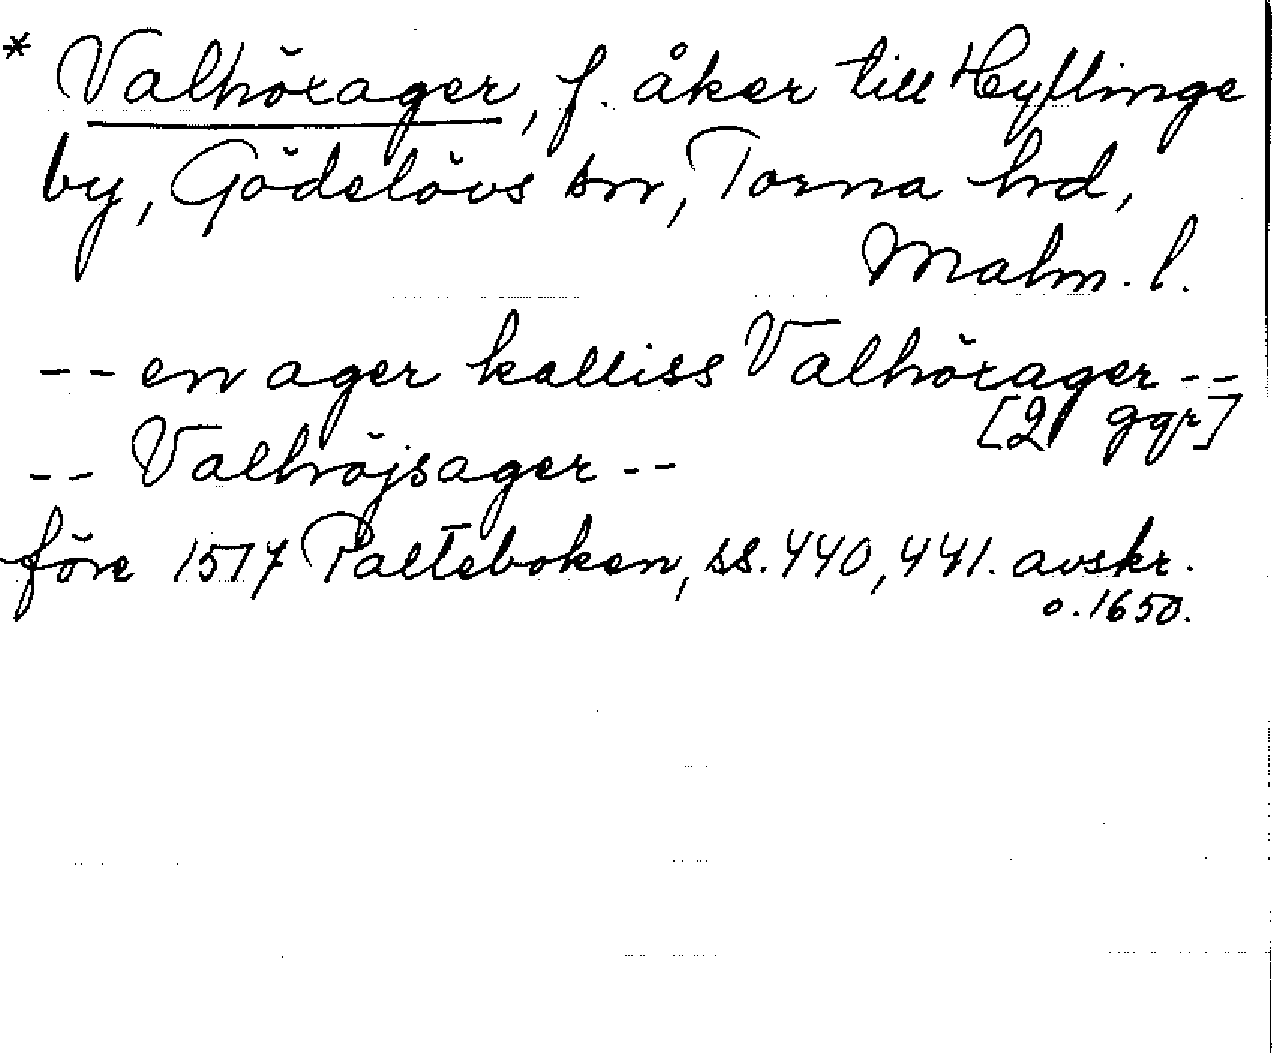 * Valhöxager, f. åker till Hyflinge
by, Gödelövs sn, Torna hd,
Malm. l.
-- en ager kalliss Valhöxager --
[2 ggr]
-- Valhöjsager --
före 1517 Palteboken, ss. 440, 441. avskr.
o. 1650.